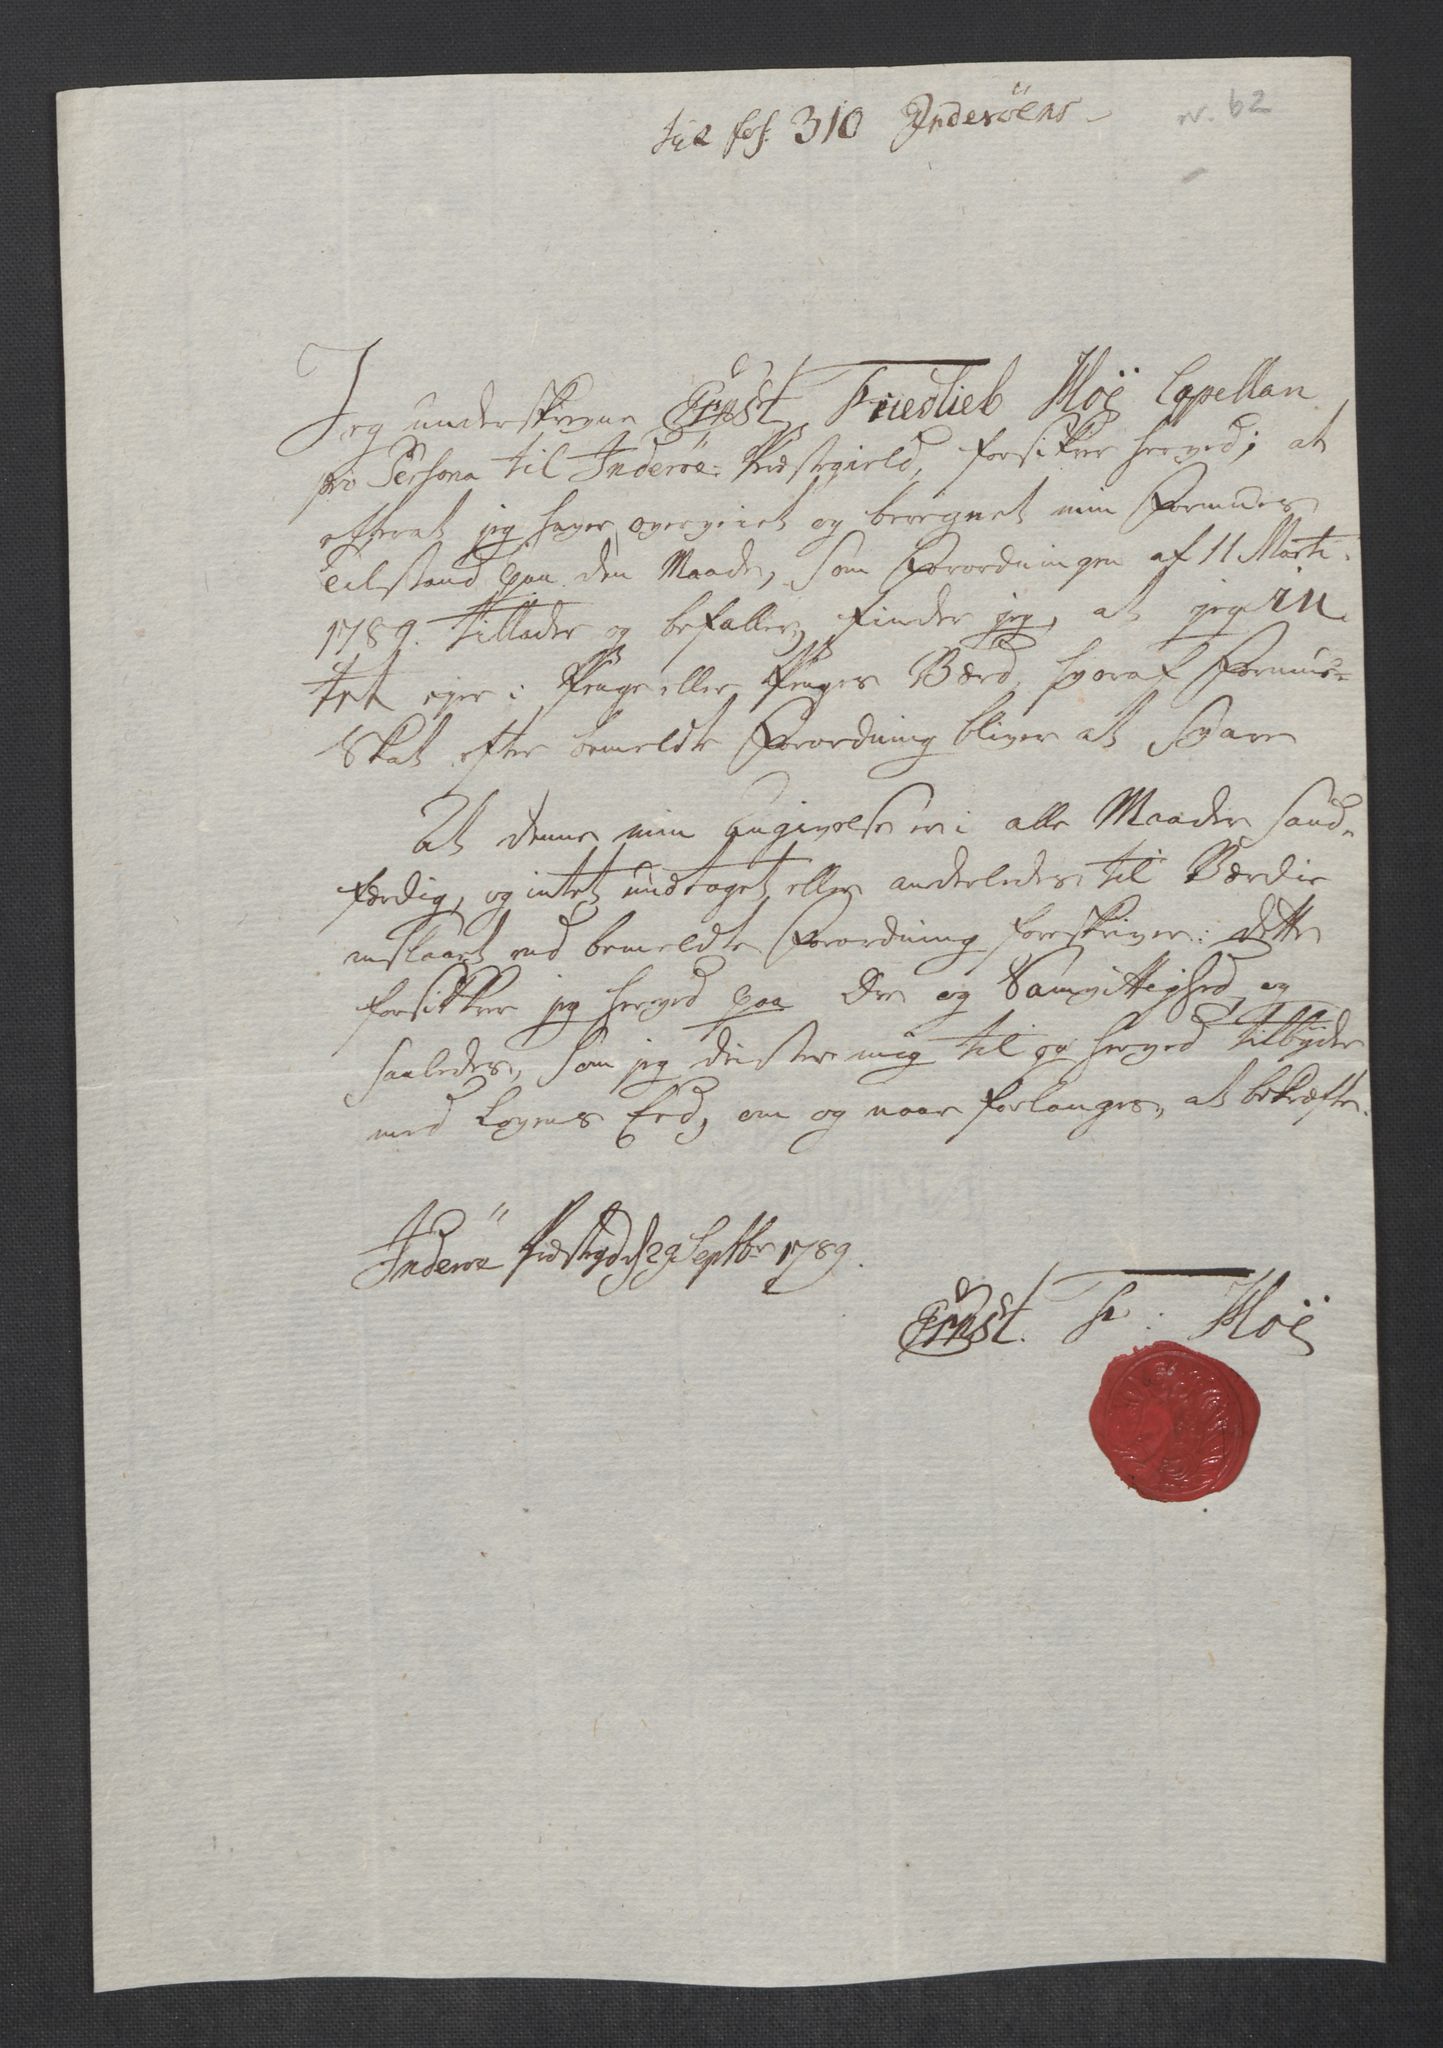 til fol. 310 Inderöens
nr. 62
Jeg underskrevne Ernst Friedlieb Høÿ Capellan
pro Persona til Inderöe Præstegield, forsikkrer herved; at
efterat jeg haver overveiet og beregnet min Formues
Tilstand paa den Maade, som Forordningen af 11 Marti
1789. tillader og befaller, finder jeg, at jeg in
tet ejer i Penge eller Penges Værd, hvoraf Formue-
Skat efter bemeldte Forordning bliver at svare
At denne min Angivelse er i alle Maader sand-
færdig, og intet undtaget eller anderledes til Værdie
anslaaet end bemeldte Forordning foreskriver: dette
forsikkrer jeg herved paa Ære og Samvittighed, og
saaledes, som jeg drister mig til og herved tilbyder
med Lovens Eed, om og naar forlanges, at bekræfte.
Inderöe Præstegd d 29 Septbr 1789.
Ernst. Fr: Høÿ